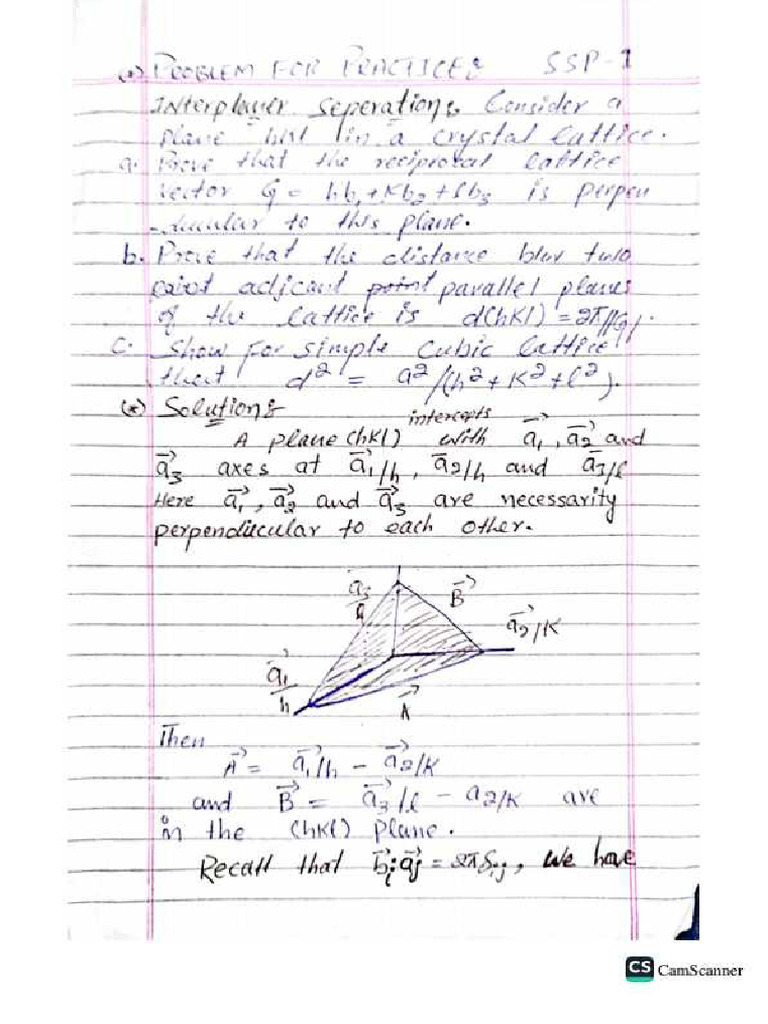 (*) PROBLEM FOR PRACTICE: SSP-1
Interplaner Seperation: Consider a
plane hkl in a crystal lattice.
a. Prove that the reciprocal lattice
vector G = hb₁+kb₂+lb₃ is perpen
-dicular to this plane.
b. Prove that the distance b/w two
adjcant parallel planes
of the lattice is d(hkl) = 2π/|G|.
c. Show for simple cubic lattice
that d² = a²/(h²+k²+l²).
(*) Solution:
A plane (hkl) intercepts with a⃗₁, a⃗₂ and
a⃗₃ axes at a⃗₁/h, a⃗₂/h and a⃗₃/l
Here a⃗₁, a⃗₂ and a⃗₃ are necessarity
perpendicular to each other.
a⃗₃/l
B⃗
a⃗₂/K
a⃗₁/h
A⃗
Then
A⃗ = a⃗₁/h - a⃗₂/K
and B⃗ = a⃗₃/l - a₂/K are
in the (hkl) plane.
Recall that b⃗ᵢ·a⃗ⱼ = 2πδᵢⱼ, We have
CS CamScanner